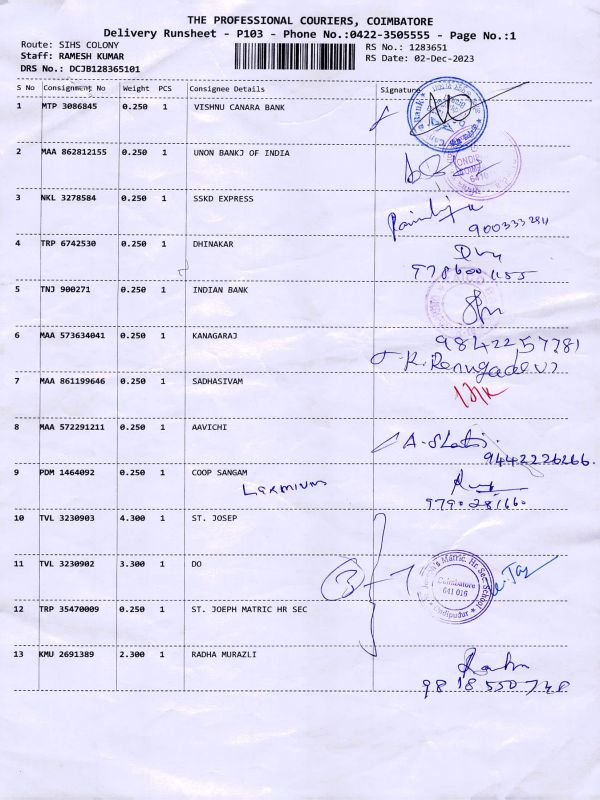 THE PROFESSIONAL COURIERS, COIMBATORE
Delivery Runsheet - P103 - Phone No.:0422-3505555 - Page No.:1
Route: SIHS COLONY RS No.: 1283651
Staff: RAMESH KUMAR RS Date: 02-Dec-2023
DRS No.: DCJB128365101
S No Consignment No Weight PCS Consignee Details Signature
1 MTP 3086845 0.250 1 VISHNU CANARA BANK
2 MAA 862812155 0.250 1 UNON BANKJ OF INDIA
3 NKL 3278584 0.250 1 SSKD EXPRESS
4 TRP 6742530 0.250 1 DHINAKAR
5 TNJ 900271 0.250 1 INDIAN BANK
6 MAA 573634041 0.250 1 KANAGARAJ 9842257781
K. Renugadevi
7 MAA 861199646 0.250 1 SADHASIVAM
8 MAA 572291211 0.250 1 AAVICHI
9442226266.
9 PDM 1464092 0.250 1 COOP SANGAM
9790281660
10 TVL 3230903 4.300 1 ST. JOSEP
11 TVL 3230902 3.300 1 DO 3
Matric. Hr Sec School
Coimbatore
641 016
Ondipudur
12 TRP 35470009 0.250 1 ST. JOEPH MATRIC HR SEC
13 KMU 2691389 2.300 1 RADHA MURAZLI
9818550748